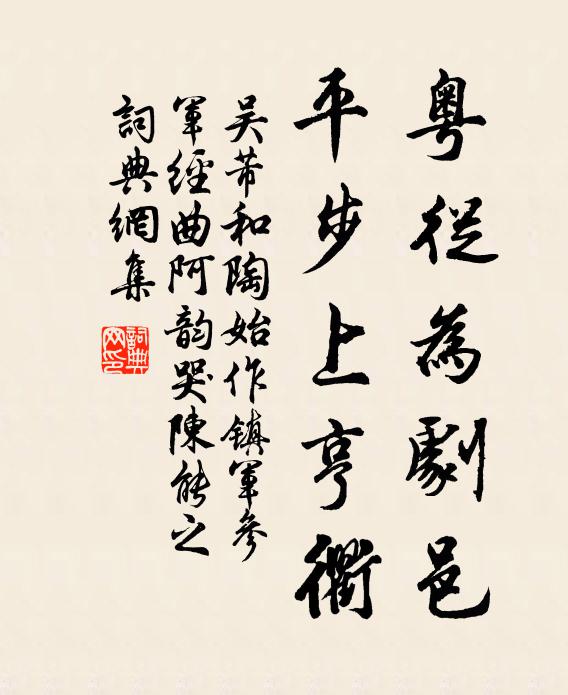 粵從為劇邑
平步上亨衢
吴芾和陶始作鎮軍參
軍經曲阿韵哭陳能之
詞典網集
詞典網印